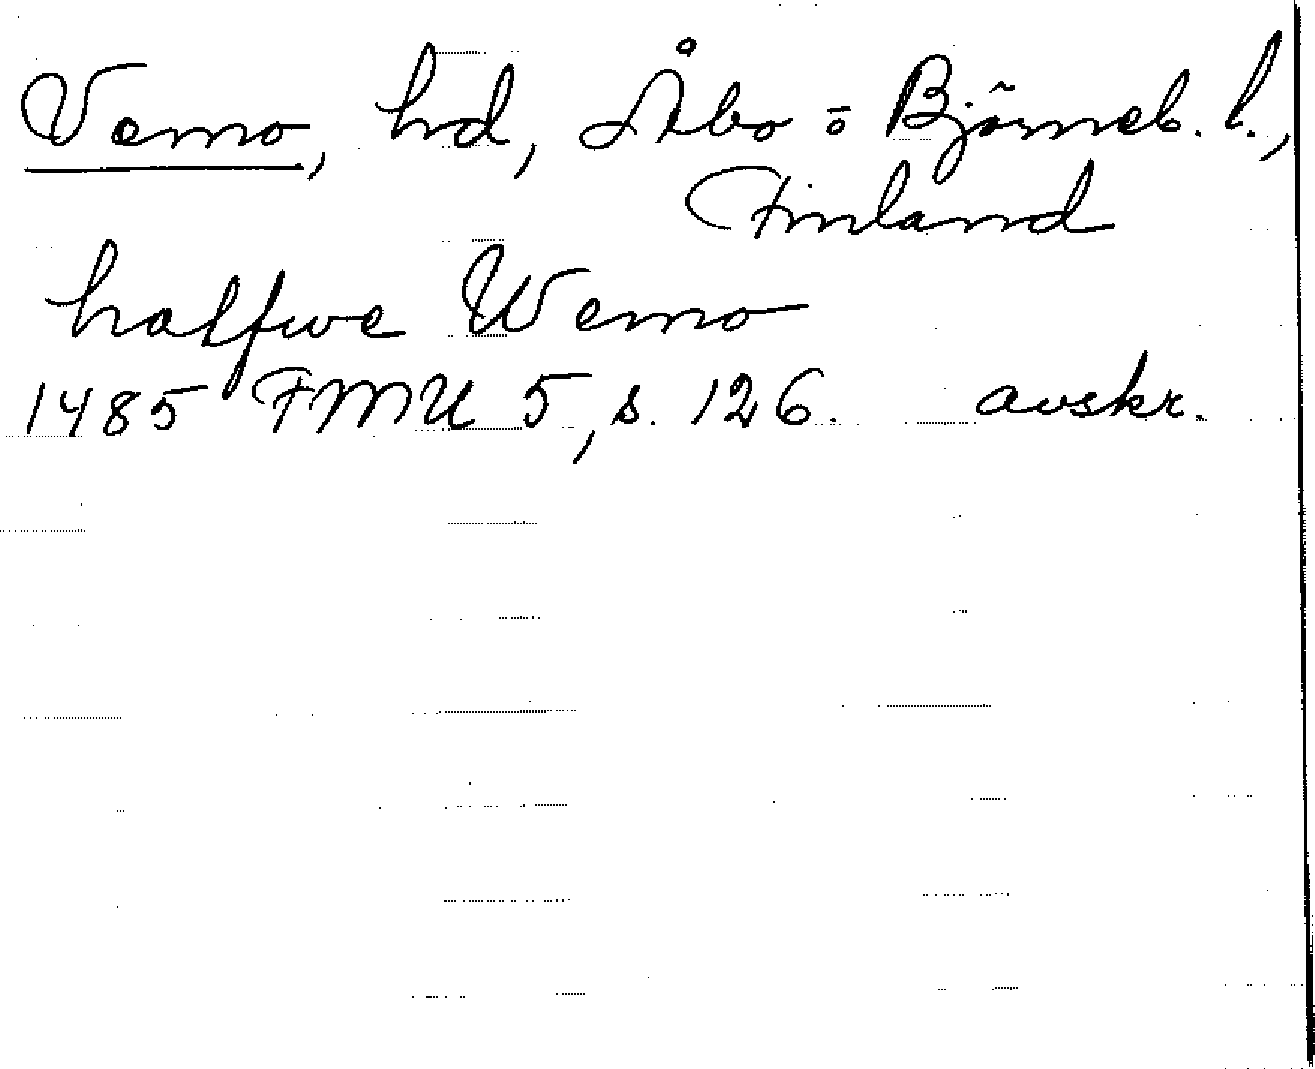 Vemo, hd, Åbo o Björneb. l.,
Finland
halfwe Wemo
1485 FMU 5, s. 126. avskr.